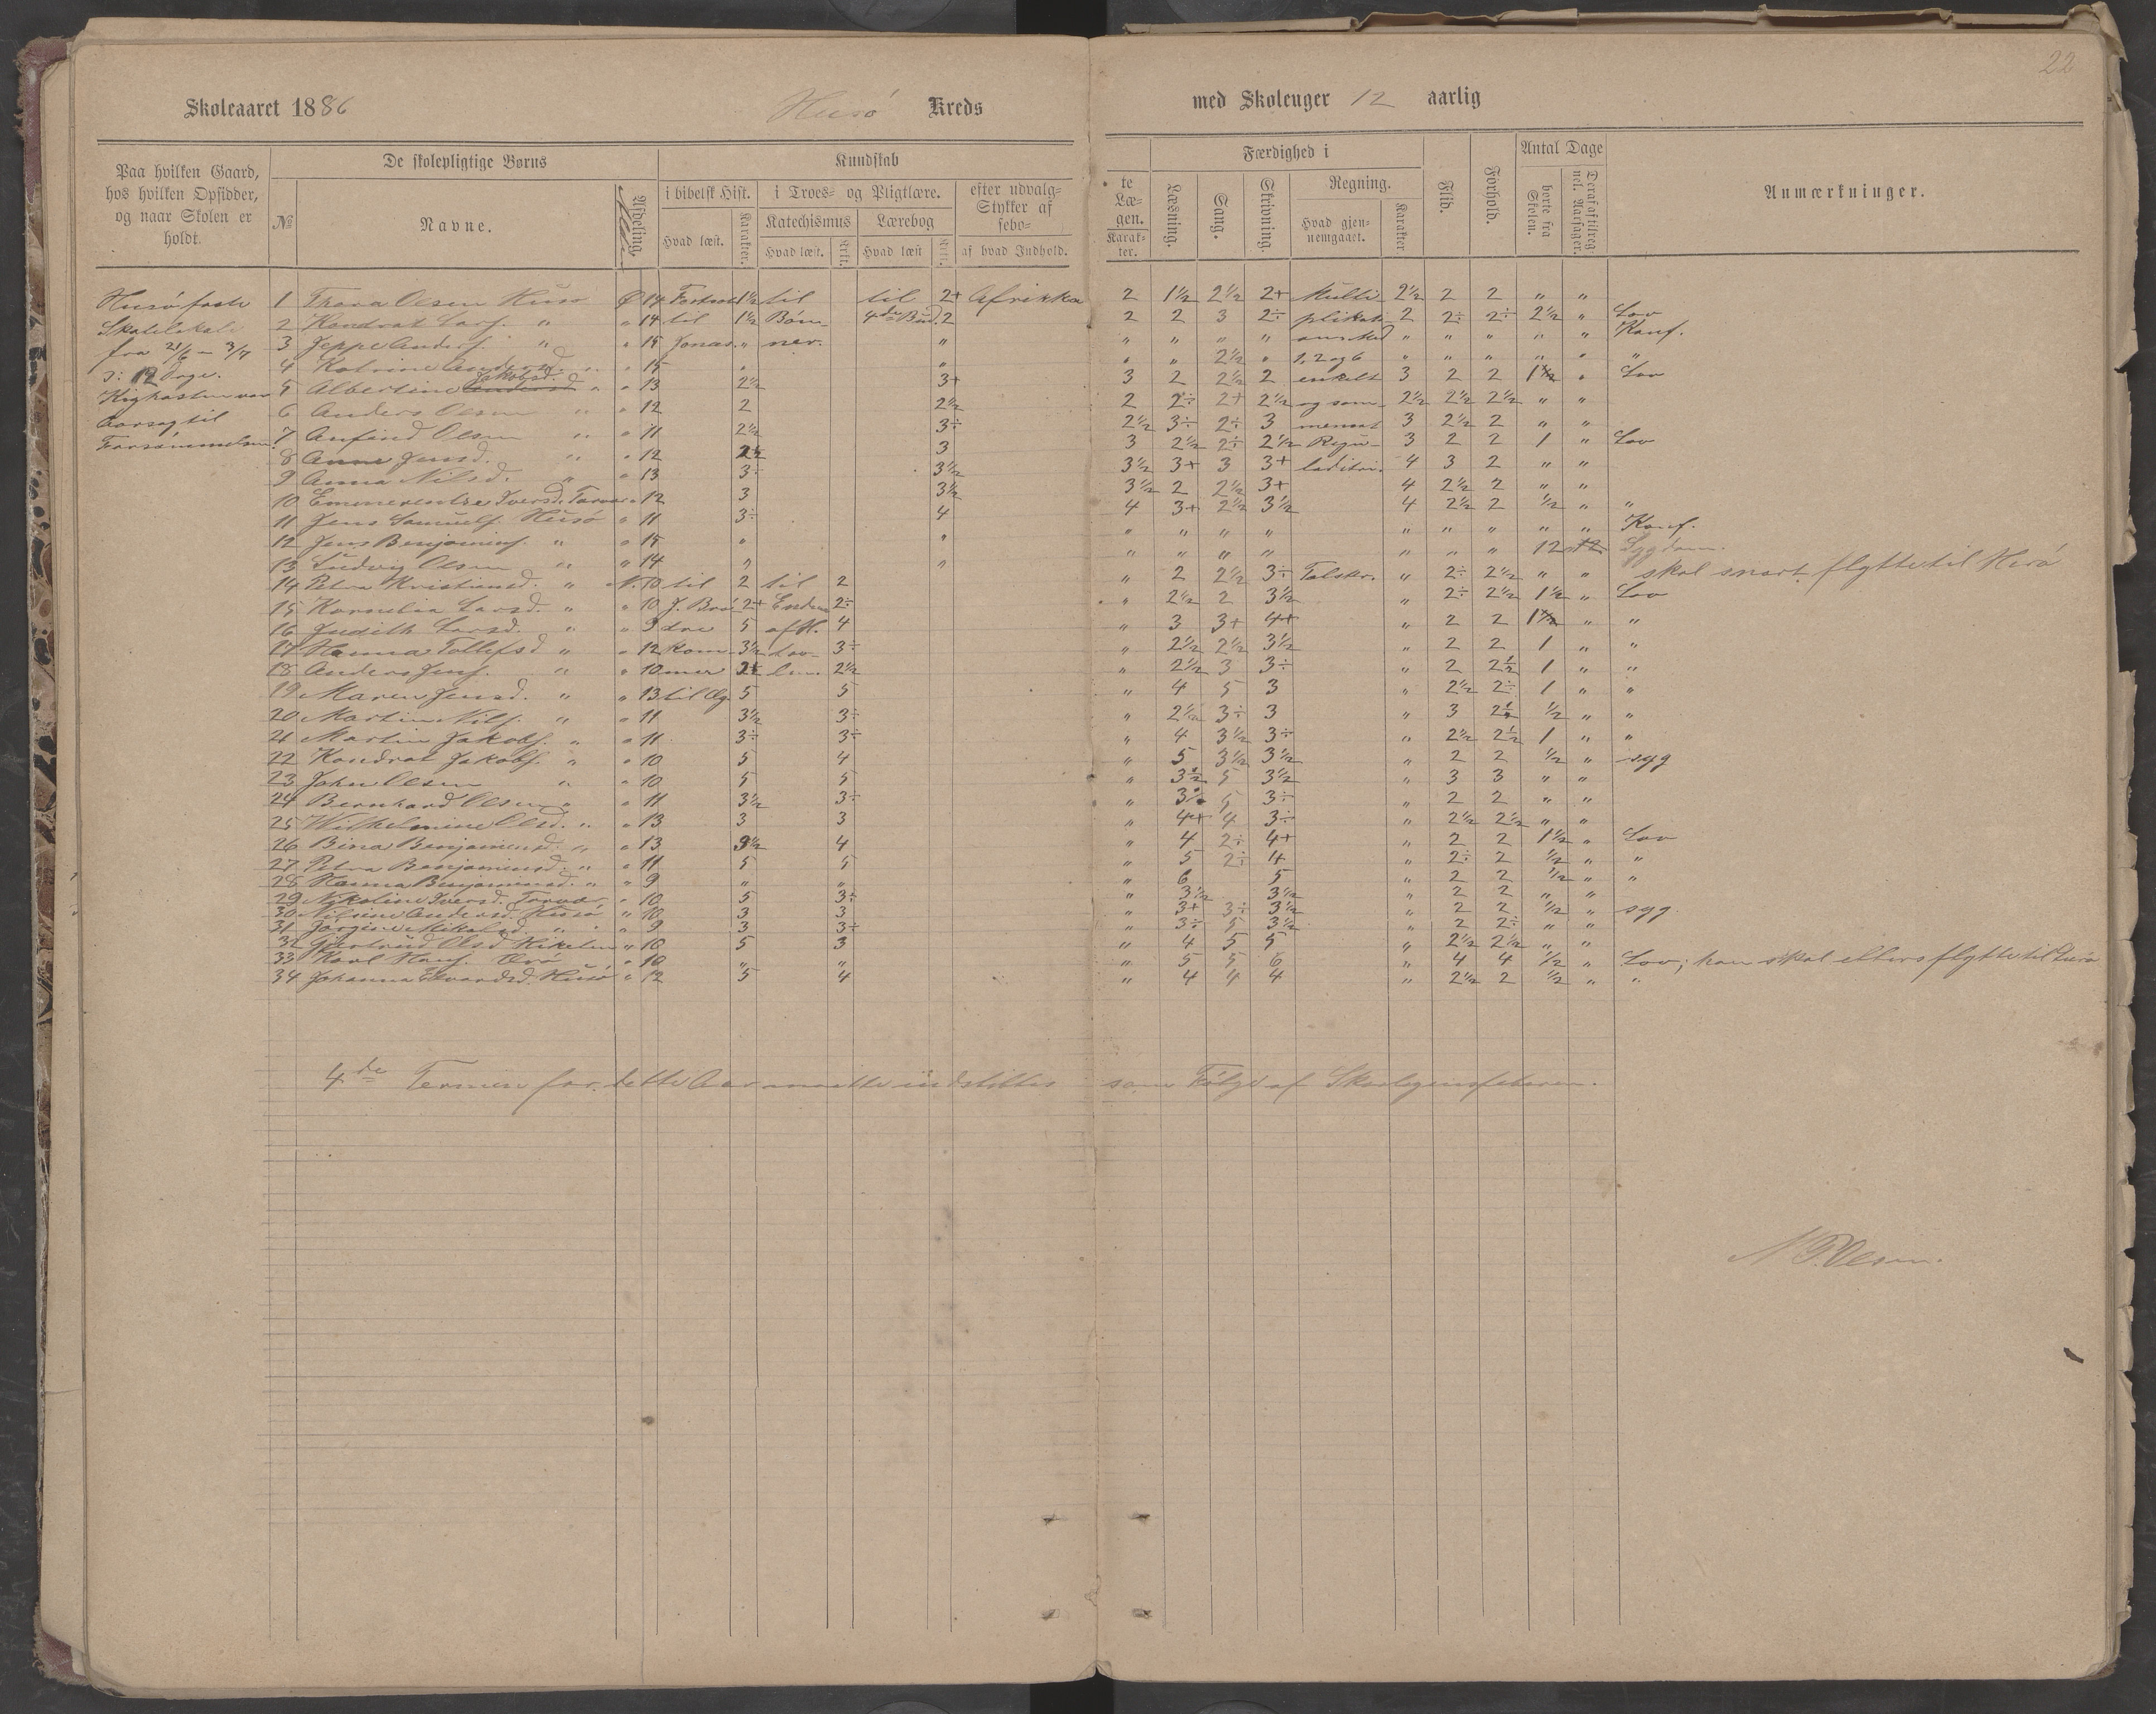 22
Skoleaaret 1886 Husö Kreds med Skoleuger 12 aarlig
Paa hvilken Gaard, hos hvilken Opsidder, og naar Skolen er holdt.
De skolepligtige Børns
№ Navne. Afdeling. Alder
Kundskab
i bibelsk Hist. Hvad læst. Karakter.
i Troes- og Pligtlære.
Katechismus Hvad læst. Krkt.
Lærebog Hvad læst Krkt.
efter udvalg- Stykker af sebo- af hvad Indhold.
te Læ- gen. Karak- ter.
Færdighed i
Læsning. Sang. Skrivning.
Regning. Hvad gjen- nemgaaet. Karakter
Flid. Forhold.
Antal Dage
borte fra Skolen. Deraf af tilreg nel. Aarsager.
Anmærkninger.
Husö faste
Skolelokale
fra 21/6 – 3/7
ɔ: 12 Dage.
Kighosten var
Aarsag til
Forsømmelsen.
1 Thora Olsen Husö Ø 14 Fortsat 1½ til til 2+ Afrikka 2 1½ 2½ 2+ Multi 2½ 2 2 „ „
2 Kondrat Larss. „ „ 14 til 1½ Bön- 4de Bud. 2 2 2 3 2÷ plikati- 2 2÷ 2÷ 2½ „ Lov
3 Jeppe Anders. „ „ 15 Jonas. „ ner. „ „ „ „ „ „ „ „ „ „ Konf.
4 Katrine Andersd. „ „ 15 „ „ „ „ 2½ „ 1, 2 og 6 „ „ „ „ „ „
5 Albertine Jakobsd. „ „ 13 2½ 3+ 3 2 2½ 2 enkelt 3 2 2 1½ „ Lov
6 Anders Olsen „ „ 12 2 2½ 2 2÷ 2+ 2½ og sam- 2½ 2½ 2½ „ „
7 Anfind Olsen „ „ 11 2½ 3÷ 2½ 3÷ 2÷ 3 mensat 3 2½ 2 „ „
8 Anne Jensd. „ „ 12 2½ 3 3 2½ 2÷ 2½ Regu- 3 2 2 1 „ Lov
9 Anna Nilsd. „ „ 13 3÷ 3½ 3½ 3+ 3 3+ laditri. 4 3 2 „ „
10 Emmerentse Iversd. Torvær „ 12 3 3½ 3½ 2 2½ 3+ 4 2½ 2 „ „
11 Jens Samuels. Husö „ 11 3÷ 4 4 3+ 2½ 3½ 4 2½ 2 ½ „ „
12 Jens Benjamins. „ „ 15 „ „ „ „ „ „ „ „ „ „ „ Konf.
13 Ludvig Olsen „ „ 14 „ „ „ „ „ „ „ „ „ 12 12 Sygdom.
14 Petra Kristiansd. „ N. 10 til 2 til 2 „ 2 2½ 3÷ Talskr. „ 2÷ 2½ „ „ skal snart flytte til Herö
15 Kornelia Larsd. „ „ 10 J. Brö 2+ Enden 2÷ „ 2½ 2 3½ „ 2÷ 2½ 1½ „ Lov
16 Judith Larsd. „ „ 9 dre 5 af H. 4 „ 3 3+ 4+ „ 2 2 1½ „ „
17 Hanna Tollefsd „ „ 12 kom- 3½ Lov- 3÷ „ 2½ 2½ 3½ „ 2 2 1 „ „
18 Anders Jens. „ „ 10 mer 2½ 2½ „ 2½ 3 3÷ „ 2 2½ 1 „ „
19 Maren Jensd. „ „ 13 til Æg 5 5 „ 4 5 3 „ 2½ 2÷ 1 „ „
20 Martin Nils. „ „ 11 3½ 3÷ „ 2½ 3÷ 3 „ 3 2½ ½ „ „
21 Martin Jakobs. „ „ 11 3÷ 3÷ „ 4 3½ 3÷ „ 2½ 2½ 1 „ „
22 Kondrat Jakobs. „ „ 10 5 4 „ 5 3½ 3½ „ 2 2 ½ „ syg
23 John Olsen „ „ 10 5 5 „ 3½ 5 3½ „ 3 3 „ „
24 Bernhard Olsen „ „ 11 3½ 3÷ „ 3½ 5 3÷ „ 2 2 „ „
25 Wilhelmine Olsd. „ „ 13 3 3 „ 4+ 4 3÷ „ 2½ 2½ „ „
26 Bina Benjaminsd. „ „ 13 3½ 4 „ 4 2÷ 4+ „ 2 2 1½ „ Lov
27 Petra Benjaminsd. „ „ 11 5 5 „ 5 2÷ 4 „ 2÷ 2 ½ „ „
28 Hanna Benjaminsd. „ „ 9 „ „ „ 6 5 „ 2 2 ½ „ „
29 Nikoline Iversd. Torvær „ 10 5 3÷ „ 3½ 3½ „ 2 2 „ „
30 Nilsine Andersd. Husö „ 10 3 3 „ 3+ 3÷ 3½ „ 2 2 ½ „ syg.
31 Jørgine Mikalsd. „ „ 9 3 3÷ „ 3÷ 5 3½ „ 2 2÷ „ „
32 Gjertrud Olsd „ 10 5 3 „ 4 5 5 „ 2½ 2½ „ „
33 Karl Hans. „ 10 „ „ „ 5 5 6 „ 4 4 ½ „ Lov; han skal ellers flytte til Lurö
34 Johanna Edvardsd. Husö „ 12 5 4 „ 4 4 4 „ 2½ 2 ½ „ „
4de Termin for dette Aar maatte indstilles som Fölge af Skarlagensfeberen.
N P. Olsen.